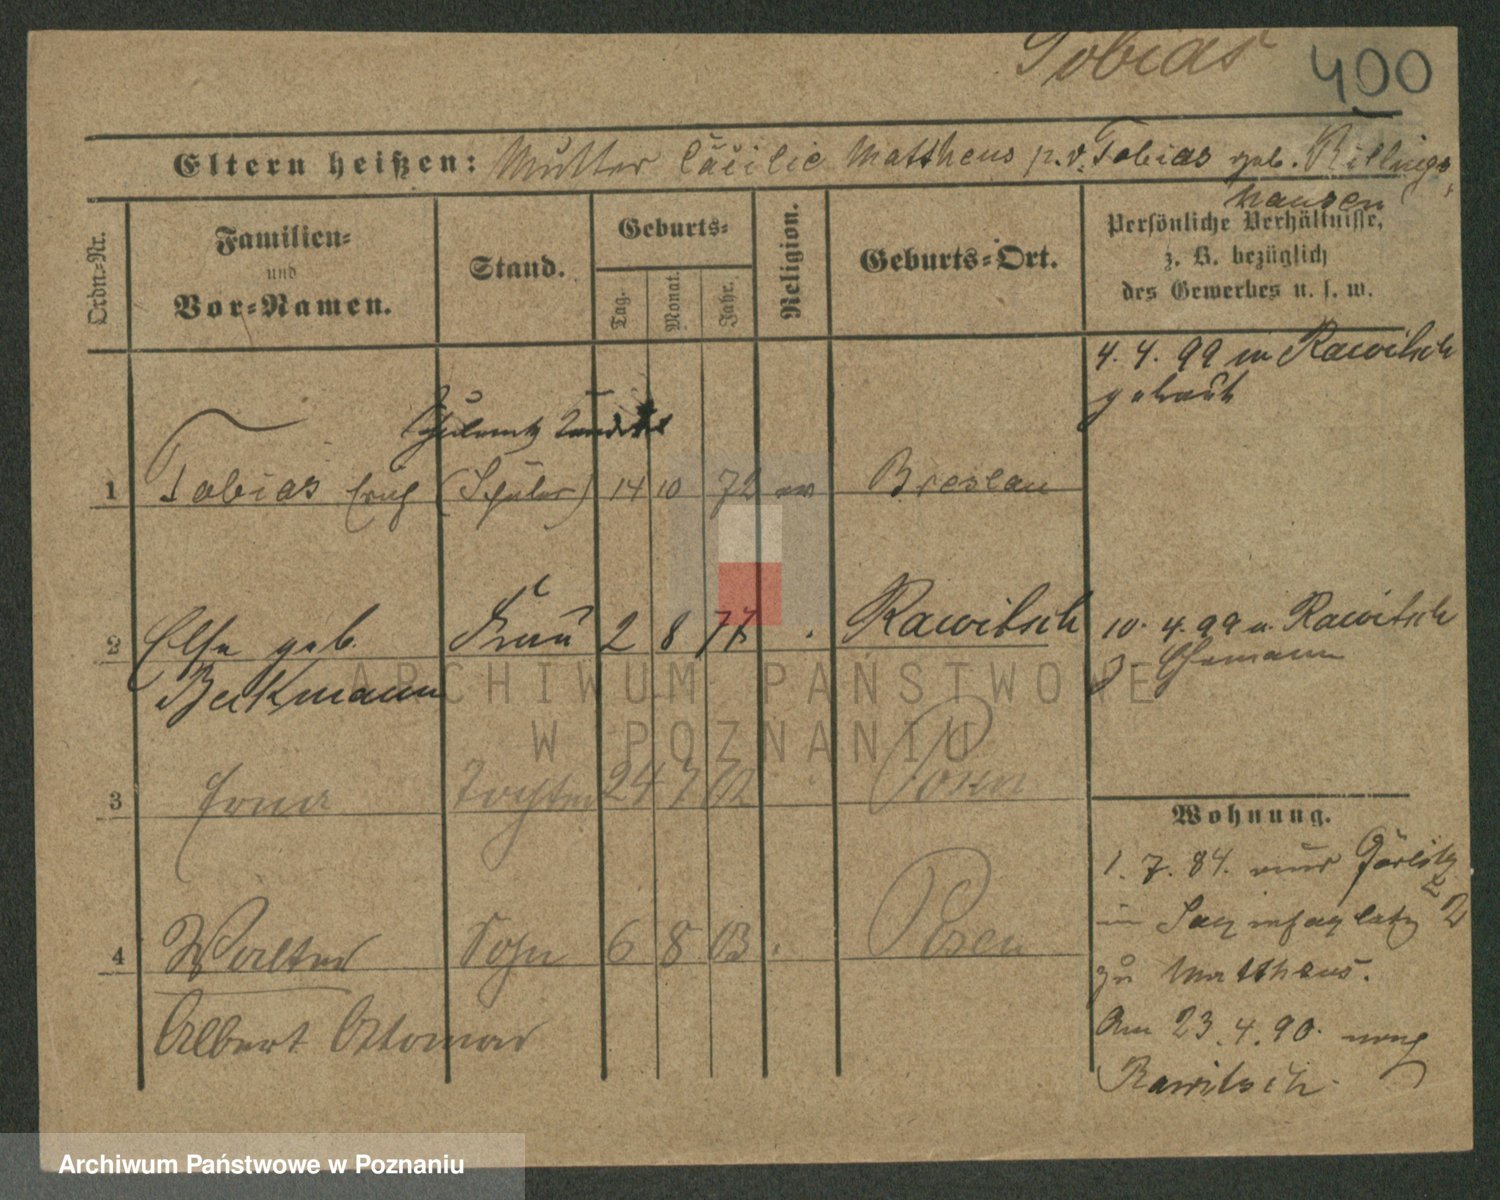 Tobias 400
Eltern heißen: Mutter Cäcilie Mattheus p. v. Tobias geb. Billings
hausen
Ordn=Nr.
Familien=
und
Vor=Namen.
Stand.
Geburts=
Tag.
Monat.
Jahr.
Religion.
Geburts=Ort.
Persönliche Verhältnisse,
z. B. bezüglich
des Gewerbes u. s. w.
4. 4. 99 in Rawitsch
getraut
1 Tobias Erich (Schüler) 14 10 72 ev Breslau
2 Else geb. Frau 2 8 77 Rawitsch
Beckmann
10. 4. 99 v. Rawitsch
z. Ehemann
3 Erna Tochter 24 7 02 Posen
4 Walter Sohn 6 8 03 Posen
Albert Ottomar
Wohnung.
1. 7. 84. aus Görlitz
in Sapiehaplatz 2
zu Mattheus.
Am 23. 4. 90. nach
Rawitsch.
ARCHIWUM PAŃSTWOWE
W POZNANIU
Archiwum Państwowe w Poznaniu